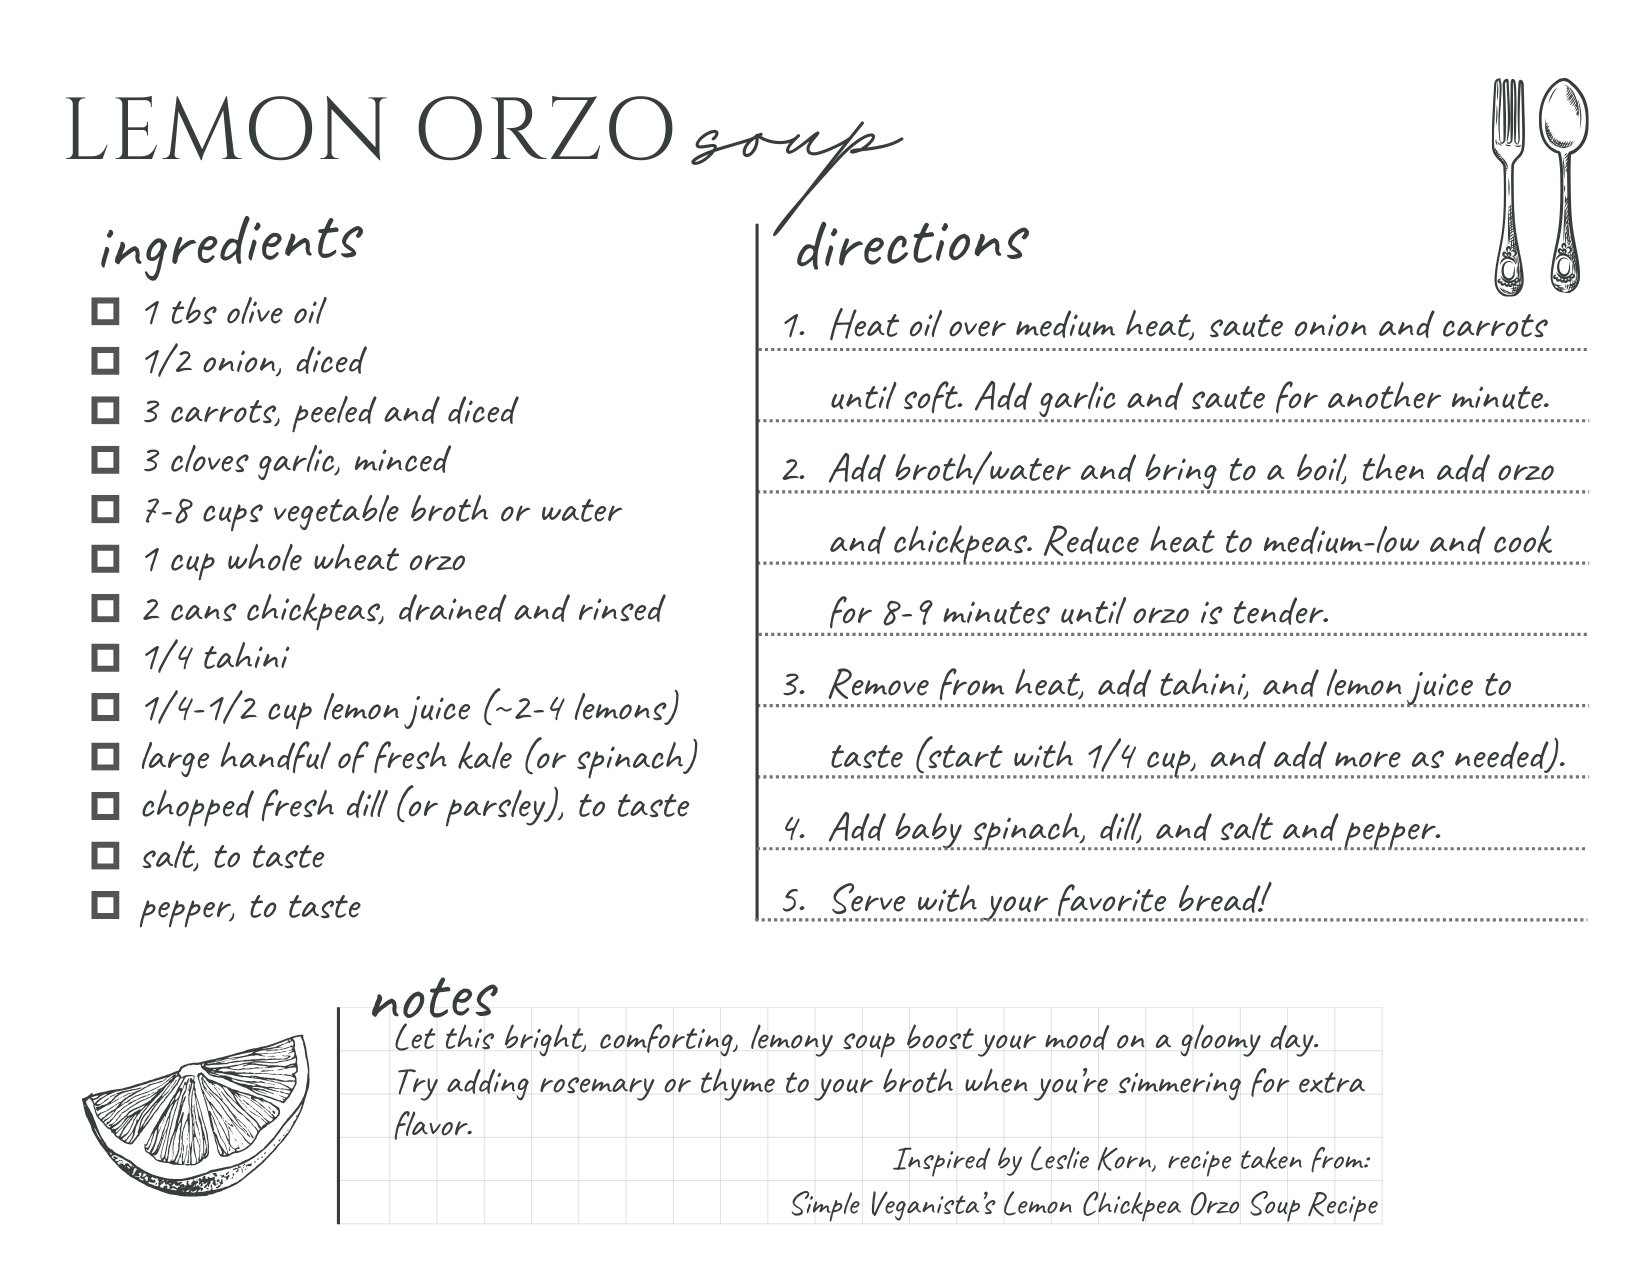 LEMON ORZO soup
ingredients
1 tbs olive oil
1/2 onion, diced
3 carrots, peeled and diced
3 cloves garlic, minced
7-8 cups vegetable broth or water
1 cup whole wheat orzo
2 cans chickpeas, drained and rinsed
1/4 tahini
1/4-1/2 cup lemon juice (~2-4 lemons)
large handful of fresh kale (or spinach)
chopped fresh dill (or parsley), to taste
salt, to taste
pepper, to taste
directions
1. Heat oil over medium heat, saute onion and carrots
until soft. Add garlic and saute for another minute.
2. Add broth/water and bring to a boil, then add orzo
and chickpeas. Reduce heat to medium-low and cook
for 8-9 minutes until orzo is tender.
3. Remove from heat, add tahini, and lemon juice to
taste (start with 1/4 cup, and add more as needed).
4. Add baby spinach, dill, and salt and pepper.
5. Serve with your favorite bread!
notes
Let this bright, comforting, lemony soup boost your mood on a gloomy day.
Try adding rosemary or thyme to your broth when you're simmering for extra
flavor.
Inspired by Leslie Korn, recipe taken from:
Simple Veganista's Lemon Chickpea Orzo Soup Recipe